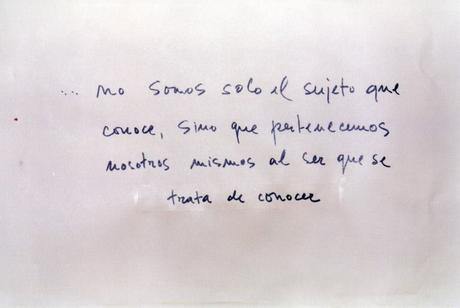 ... no somos solo el sujeto que
conoce, sino que pertenecemos
nosotros mismos al ser que se
trata de conocer